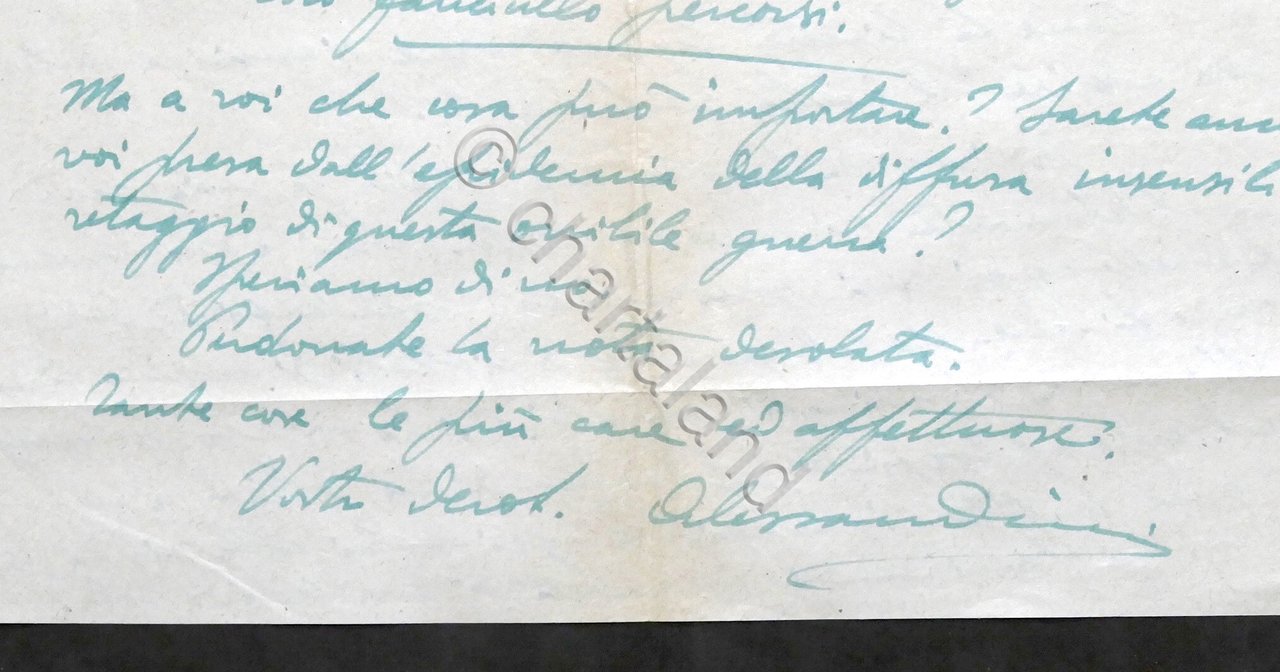 fanciullo percorsi.
Ma a voi che cosa può importare? Sarete anc
voi presa dall'epidemia della diffusa insensibi
retaggio di questa orribile guerra?
Speriamo di no.
Perdonate la nota desolata.
Tante cose le più care ed affettuose.
Vostro devot. Alessandrini
© chartaland